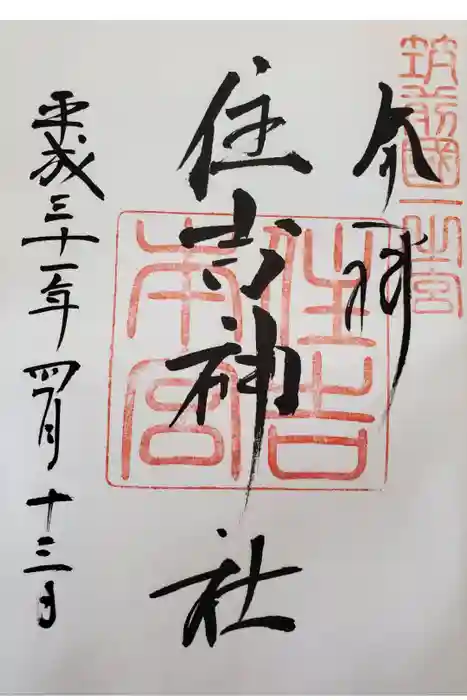 筑前國一之宮
奉拝
住吉神社
住吉本宮
平成三十一年四月十三日